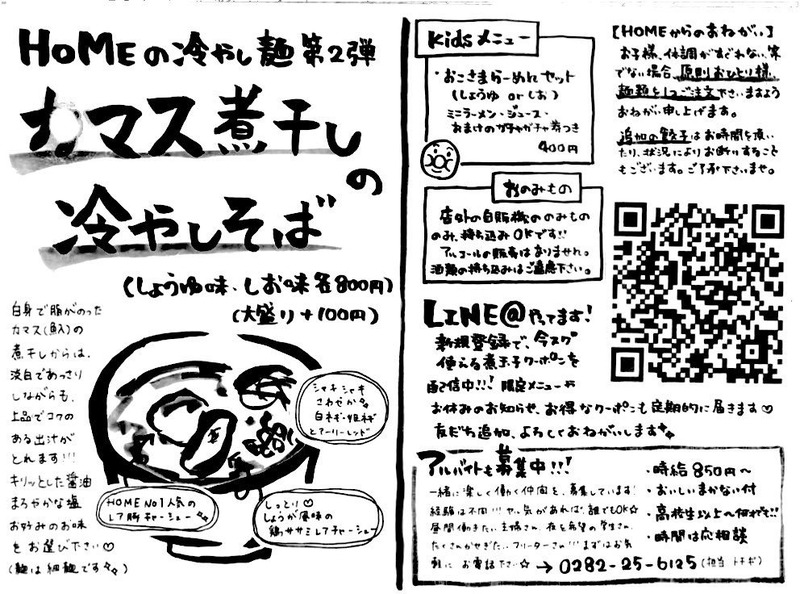 HOMEの冷やし麺第2弾
カマス煮干し
の
冷やしそば
(しょうゆ味、しお味各800円)
(大盛り+100円)
白身で脂がのった
カマス(魚)の
煮干しからは、
淡白であっさり
しながらも、
上品でコクの
ある出汁が
とれます!!!
キリッとした醤油
まろやかな塩
お好みのお味
をお選び下さい♡
(麺は細麺です)
シャキシャキ
さわやか
白ネギ・姫ネギ
とアーリーレッド
HOME No1人気の
レア豚チャーシュー
しっとり♡
しょうが風味の
鶏ササミレアチャーシュー
Kidsメニュー
・おこさまらーめんセット
(しょうゆ or しお)
ミニラーメン・ジュース・
おまけのガチャガチャ券つき
400円
おのみもの
店外の自販機ののみもの
のみ、持ち込みOKです!!
アルコールの販売はありません。
酒類の持ち込みはご遠慮下さい。
【HOMEからのおねがい】
お子様、体調がすぐれない等
でない場合、原則おひとり様、
麺類を1つご注文下さいますよう
おねがい申し上げます。
追加の餃子はお時間を頂い
たり、状況によりお断りすること
もございます。ご了承下さいませ。
LINE@やってます!
新規登録で、今スグ
使える煮玉子クーポンを
配信中!!! 限定メニューや
お休みのお知らせ、お得なクーポンも定期的に届きます♡
友だち追加、よろしくおねがいします
アルバイトも募集中!!!
一緒に楽しく働く仲間を、募集しています!
経験は不問!!! やる気があれば、誰でもOK☆
昼間働きたい主婦さん、夜を希望の学生さん、
たくさんかせぎたいフリーターさん!!! まずはお気
軽に お電話下さい☆ → 0282-25-6125 (担当 トチギ)
・時給850円〜
・おいしいまかない付
・高校生以上〜何才でも!!
・時間は応相談